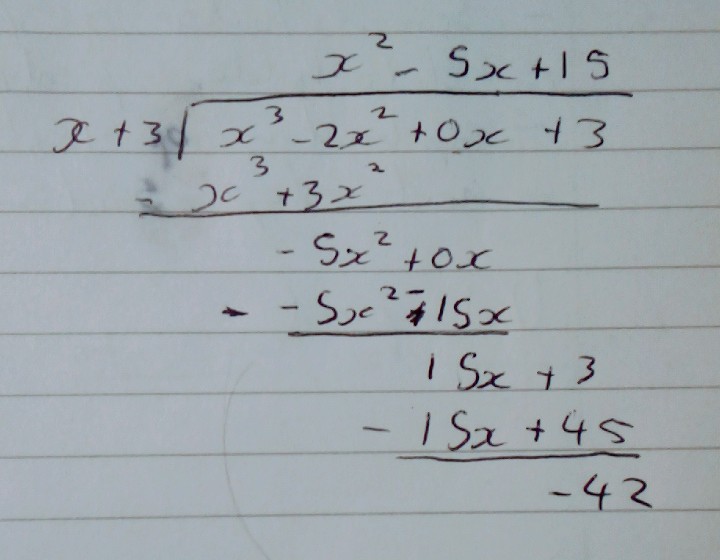 x² - 5x + 15
x + 3 x³ - 2x² + 0x + 3
- x³ + 3x²
- 5x² + 0x
- - 5x² - 15x
15x + 3
- 15x + 45
-42